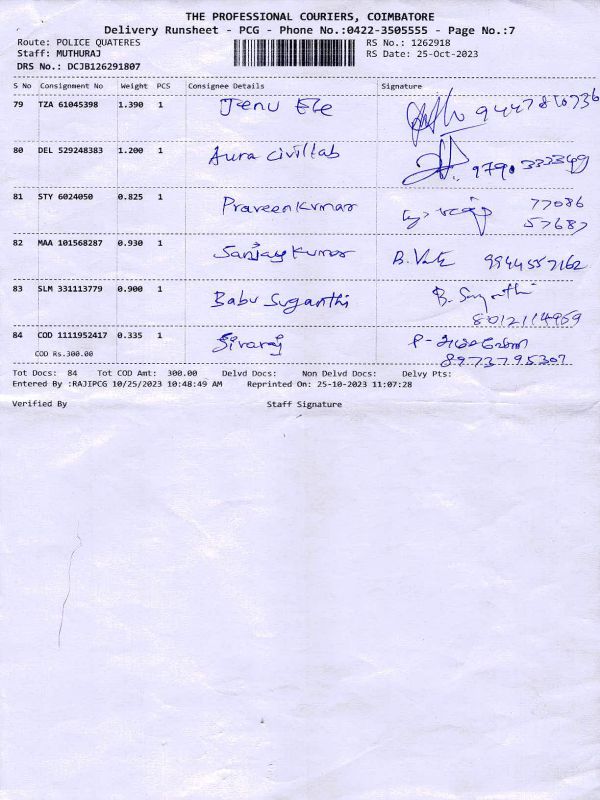 THE PROFESSIONAL COURIERS, COIMBATORE
Delivery Runsheet - PCG - Phone No.:0422-3505555 - Page No.:7
Route: POLICE QUATERES RS No.: 1262918
Staff: MUTHURAJ RS Date: 25-Oct-2023
DRS No.: DCJB126291807
S No Consignment No Weight PCS Consignee Details Signature
79 TZA 61045398 1.390 1 Jenu Ele
80 DEL 529248383 1.200 1 Aura civil lab 9790333349
81 STY 6024050 0.825 1 Praveen Kumar 77086
57687
82 MAA 101568287 0.930 1 Sanjay Kumar 9944557162
83 SLM 331113779 0.900 1 Babu Suganthi B. Suganthi
8012114959
84 COD 1111952417 0.335 1 Sivaraj
COD Rs.300.00 8973795307
Tot Docs: 84 Tot COD Amt: 300.00 Delvd Docs: Non Delvd Docs: Delvy Pts:
Entered By :RAJIPCG 10/25/2023 10:48:49 AM Reprinted On: 25-10-2023 11:07:28
Verified By Staff Signature